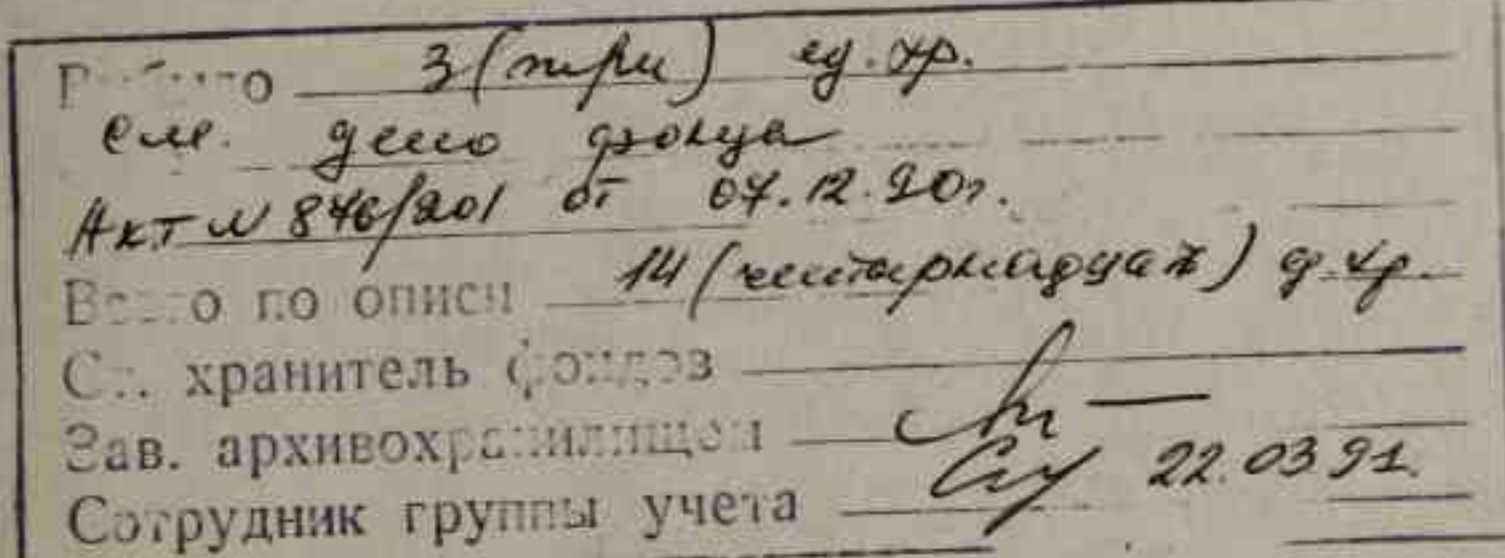 Выбыло 3 (три) ед. хр.
см. дело фонда
Акт № 846/201 от 07.12.90г.
Всего по описи 14 (четырнадцать) ед. хр.
Ст. хранитель фондов
Зав. архивохранилищем
Сотрудник группы учета 22.03.91.